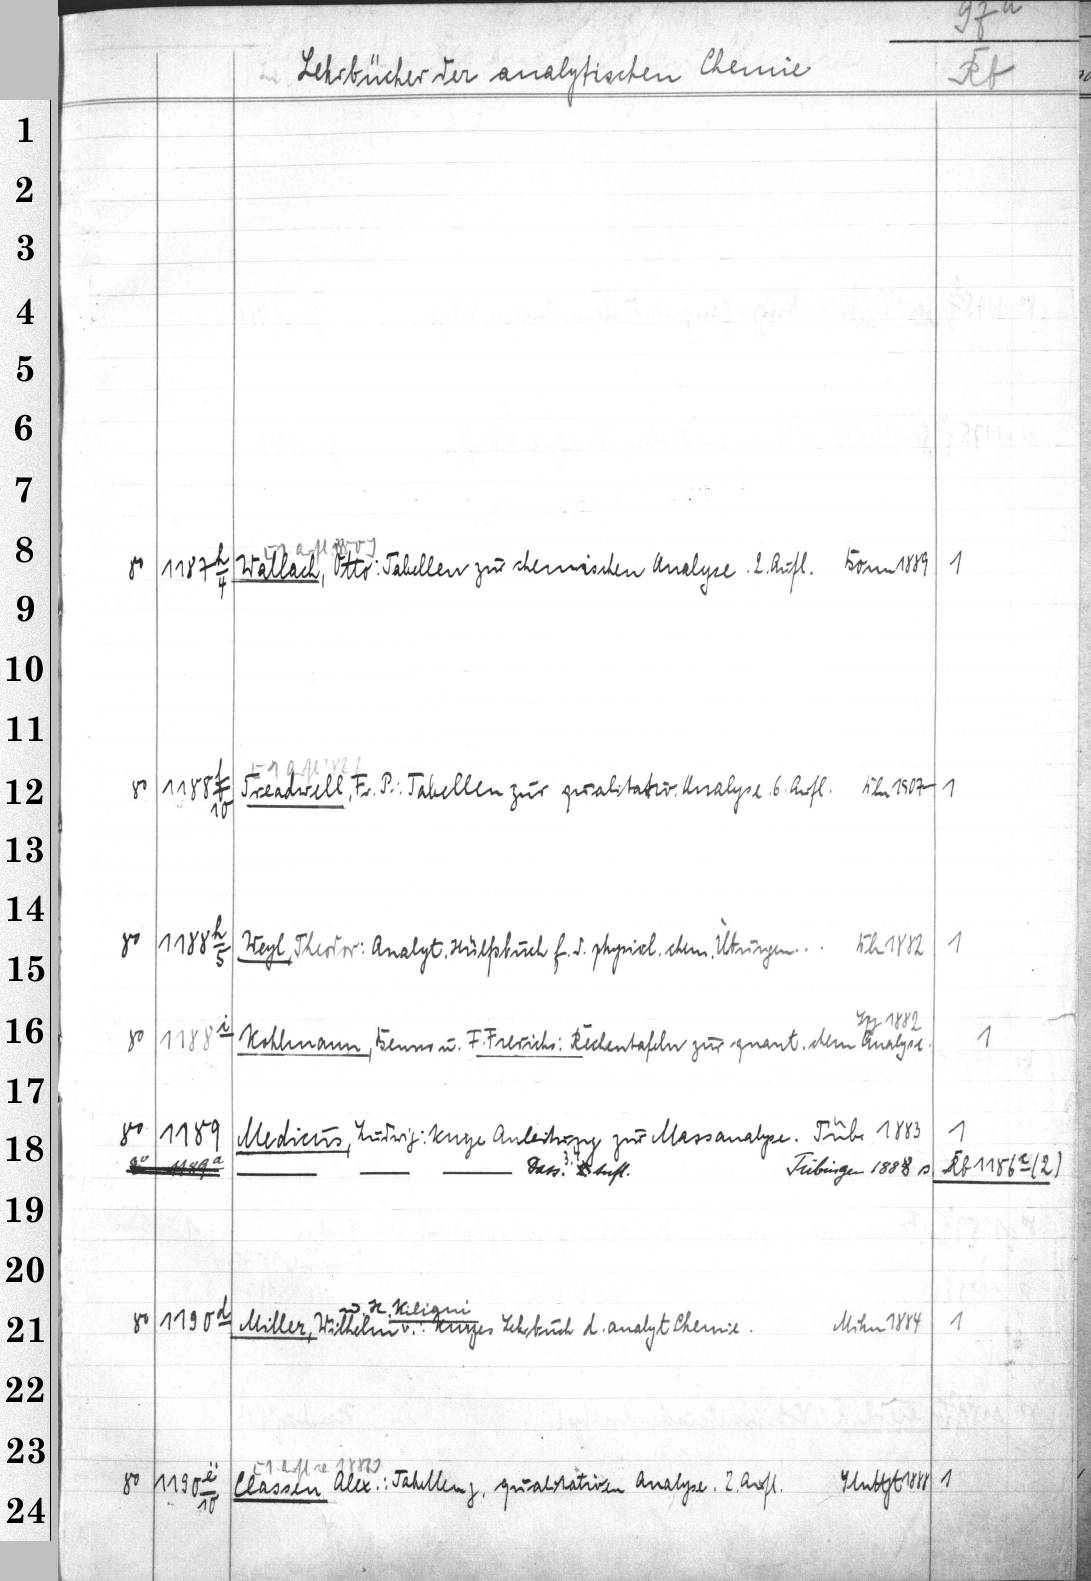 97a
Lehrbücher der analytischen Chemie Kb
1
2
3
4
5
6
7
[1. Aufl.
8
8o 1187 h/4 Wallach, Otto: Tabellen zur chemischen Analyse. 2. Aufl. Bonn 1889 1
9
10
11
12
8o 1188 f/10 Treadwell, F. P.: Tabellen zur qualitativ. Analyse. 6. Aufl. Bln 1907 1
13
14
8o 1188 h/5 Weyl, Theodor: Analyt. Hülfsbuch f. d. physiol. chem. Übungen... Bln 1882 1
15
Lpz 1882
16
8o 1188 i Kohlmann, Benno u. F. Frerichs: Rechentafeln zur quant. chem. Analyse. 1
17
8o 1189 Medicus, Ludwig: Kurze Anleitung zur Massanalyse. Tüb. 1883 1
18
8o 1189a Dass. 3.4. Aufl. Tübingen 1888 s Kb 1186 c (2)
19
20
u. H. Kiliani
21
8o 1190 d Miller, Wilhelm v.: Kurzes Lehrbuch d. analyt Chemie. Mchn 1884 1
22
23
[1. Aufl.
8o 1190 e/10 Classen Alex.: Tabellen z. qualitativen Analyse. 2. Aufl. Stuttgt 1888 1
24